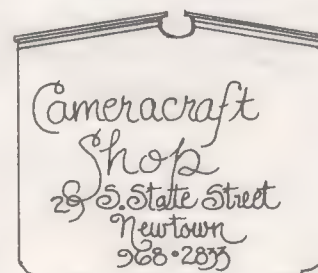 Cameracraft
Shop
28 S. State Street
Newtown
968•2833